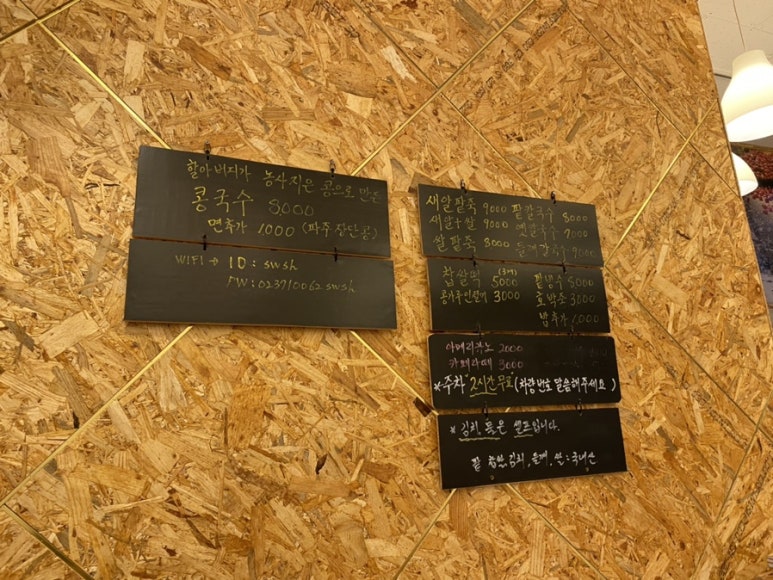 할아버지가 농사지은 콩으로 만든
콩국수 8000
면추가 1000 (파주 장단콩)
WIFI → ID : swsh
PW : 023710062swsh
새알팥죽 9000 팥칼국수 8000
새알 9000 옛칼국수 7000
쌀팥죽 8000 들깨칼국수 9000
찹쌀떡 (3개) 5000 팥빙수 8000
3000 호박죽 7000
밥추가 1,000
아메리카노 2000
카페라떼 3000
*주차 2시간 무료 (차량번호 말씀해주세요)
* 김치, 물은 셀프입니다.
팥, 김치, 들깨, 쌀 : 국내산